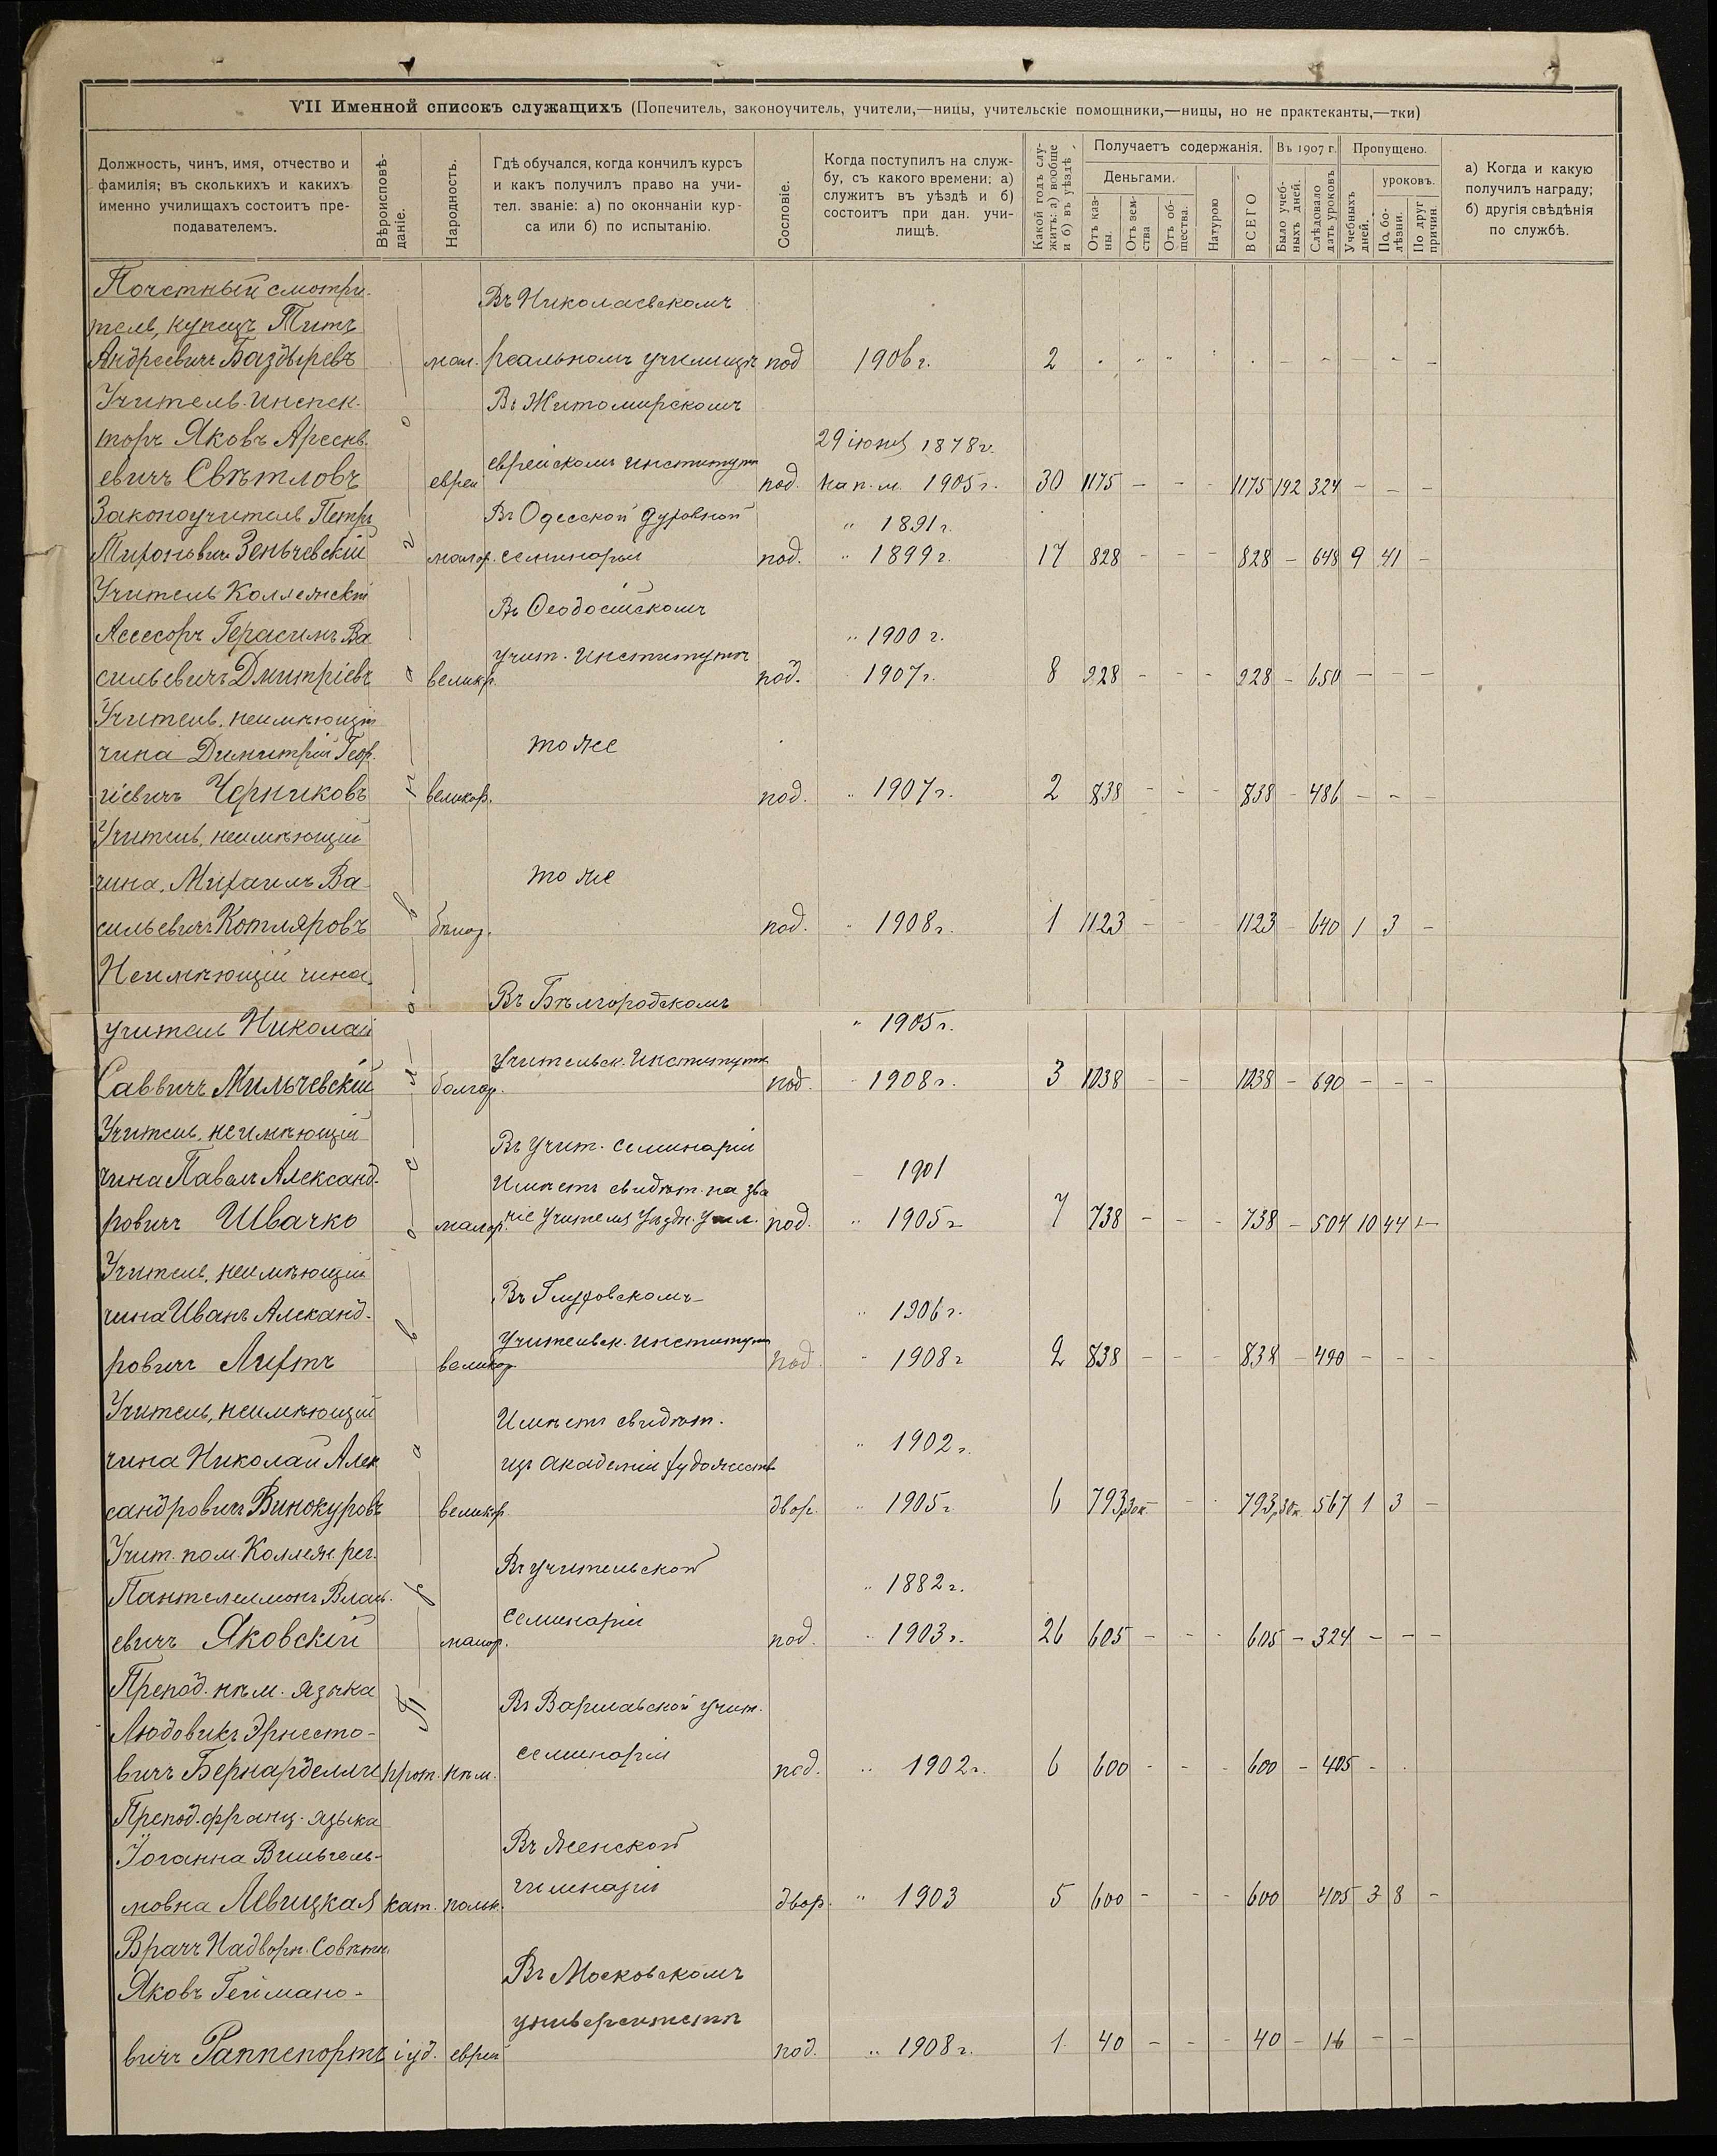 VII Именной списокъ служащихъ (Попечитель, законоучитель, учители,—ницы, учительскіе помощники,—ницы, но не практеканты,—тки)
Должность, чинъ, имя, отчество и
фамилія; въ сколькихъ и какихъ
именно училищахъ состоитъ пре-
подавателемъ.
Вѣроисповѣ-
даніе.
Народность.
Гдѣ обучался, когда кончилъ курсъ
и какъ получилъ право на учи-
тел. званіе: а) по окончаніи кур-
са или б) по испытанію.
Сословіе.
Когда поступилъ на служ-
бу, съ какого времени: а)
служитъ въ уѣздѣ и б)
состоитъ при дан. учи-
лищѣ.
Какой годъ слу-
житъ: а) вообще
и б) въ уѣздѣ
Получаетъ содержанія.
Деньгами.
Отъ каз-
ны.
Отъ зем-
ства
Отъ об-
щества.
Натурою
ВСЕГО
Въ 1907 г.
Было учеб-
ныхъ дней.
Слѣдовало
дать уроковъ
Пропущено.
Учебныхъ
дней.
уроковъ.
По бо-
лѣзни.
По друг
причин.
а) Когда и какую
получилъ награду;
б) другія свѣдѣнія
по службѣ.
Православнаго
Почетный смотри-
тель, купецъ Титъ
Андреевичъ Баздыревъ
мал.
Въ Николаевскомъ
реальномъ училищѣ
под
1906 г.
2
Учитель-инспек-
торъ Яковъ Арсень-
евичъ Свѣтловъ
евреи
Въ Житомирскомъ
еврейскомъ институтѣ
под.
29 іюня 1878 г.
на п. м. 1905 г.
30 1175 – – – 1175 192 324 – – –
Законоучитель Петръ
Митоновичъ Зеньчевскій
малор.
Въ Одесской духовной
семинаріи
под.
" 1891 г.
" 1899 г.
17 828 – – – 828 – 648 9 41 –
Учитель Коллежскій
Ассесоръ Герасимъ Ва
сильевичъ Дмитріевъ
великр.
Въ Ѳеодосійскомъ
учит. институтѣ
под.
" 1900 г.
1907 г.
8 928 – – – 928 – 650 – – –
Учитель, неимѣющій
чина Димитрій Геор-
гіевичъ Черниковъ
великор.
тоже
под.
" 1907 г.
2 838 – – – 838 – 486 – – –
Учитель, неимѣющій
чина, Михаилъ Ва-
сильевичъ Котляровъ
бѣлор.
тоже
под.
" 1908 г.
1 1123 – – 1123 – 640 1 3 –
Неимѣющій чина,
учитель Николай
Саввичъ Мильчевскій
болгар.
Въ Бѣлгородскомъ
Учительск. Институтѣ
под.
" 1905 г.
" 1908 г.
3 1038 – – 1038 – 690 – – –
Учитель, неимѣющій
чина Павелъ Александ-
ровичъ Швачко
малор.
Въ учит. семинаріи
Имѣетъ свидѣт. на зва
ніе учителя уѣздн. учил.
под.
– 1901
" 1905 г
7 738 – – – 738 – 504 10 44 –
Учитель, неимѣющій
чина Иванъ Алеканд-
ровичъ Лифтъ
великор.
Въ Глуховскомъ
Учительск. институтѣ
под.
" 1906 г.
" 1908 г
2 838 – – – 838 – 490 – – –
Учитель, неимѣющій
чина Николай Алек
сандровичъ Винокуровъ
великр.
Имѣетъ свидѣт.
изъ академіи художеств
двор.
" 1902 г.
" 1905 г
6 793,30к. – – 793,30к. 567 1 3 –
Учит. пом. Коллеж. рег.
Пантелеимонъ Влась-
евичъ Яковскій
малор.
Въ учительской
семинаріи
под.
" 1882 г.
" 1903 г.
26 605 – – – 605 – 324 – – –
Препод. нѣм. языка
Людовикъ Эрнесто-
вичъ Бернарделли
прот. нѣм.
Въ Варшавской учит.
семинаріи
под.
" 1902 г.
6 600 – – – 600 – 405 –
Препод. франц. языка
Іоганна Вильгель-
мовна Левицкая
кат. польк.
Въ Ясенской
гимназіи
двор.
" 1903
5 600 – – – 600 405 3 8 –
Врачъ Надворн. Совѣтн.
Яковъ Геймано-
вичъ Раппепортъ
іуд. еврей
Въ Московскомъ
университетѣ
под.
" 1908 г.
1 40 – – – 40 – 16 – –